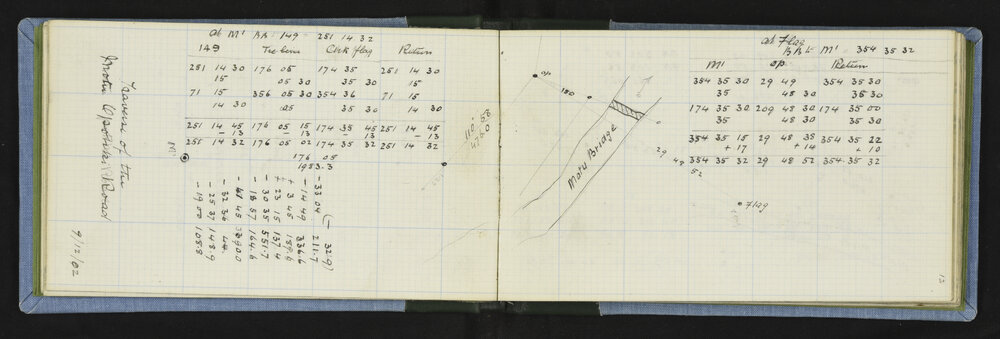 Traverse of the
Motu Opotiki Road
9/12/02
At M' BB 149 251 14 32
149 Tre bene Chk flag Return
251 14 30 176 05 174 35 251 14 30
15 05 30 35 30 15
71 15 356 05 30 354 36 71 15
14 30 05 35 30 14 30
251 14 45 176 05 15 174 35 45 251 14 45
- 13 13 - 13 - 13
251 14 32 176 05 02 174 35 32 251 14 32
M'
176 05
1983.3
- 33 04 (- 329)
- 14 49 211.7
+ 3 45 336.6
+ 23 15 189.6
- 30 35 137.4
- 18 57 551.7
164.6
- 32 36
- 25 37 148.9
- 19 00 108.8
110° 58
476.0
op
180
Motu Bridge
29
48
52
Flag
At Flag
BB L M' 354 35 32
M' op. Return
354 35 30 29 49 354 35 30
35 48 30 35 30
174 35 30 209 48 30 174 35 00
35 48 30 35 30
354 35 15 29 48 38 354 35 22
+ 17 + 14 + 10
354 35 32 29 48 52 354 35 32